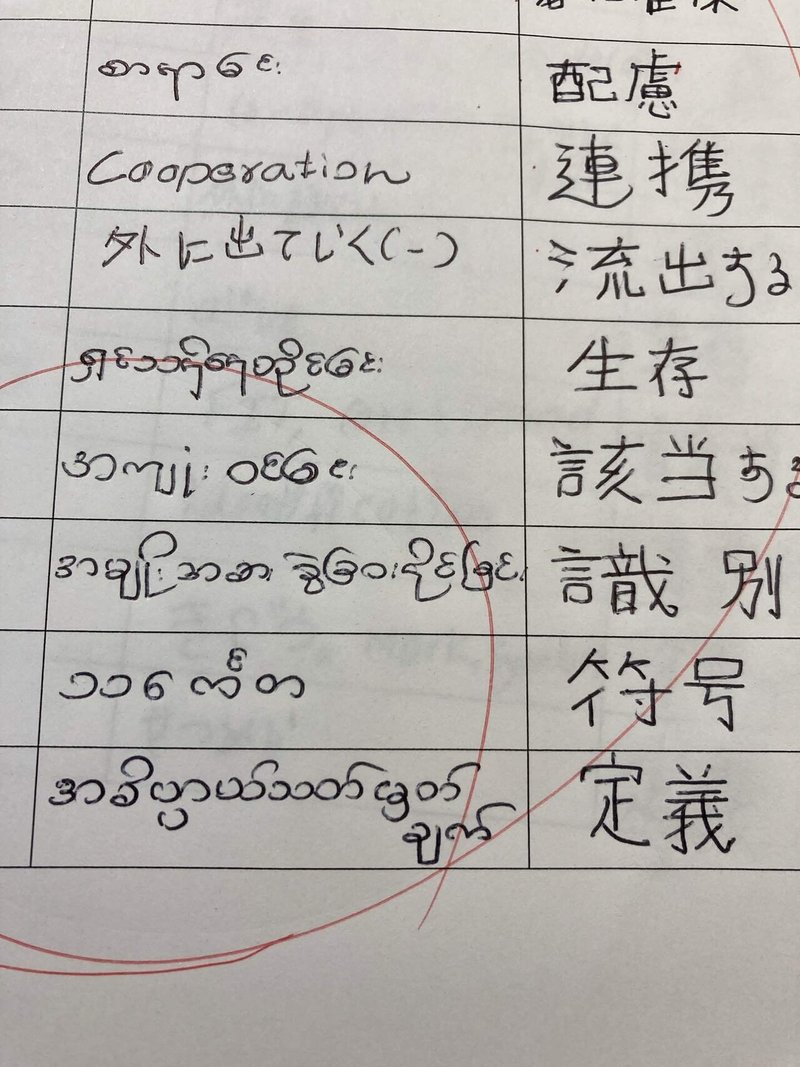 စာရာခင်း 配慮
Cooperation 連携
外に出ていく(-) 流出する
ရှင်သန်နေထိုင်ခြင်း 生存
အကျုံးဝင်ခြင်း 該当する
အမျိုးအစား ခွဲခြားနိုင်ခြင်း 識別
သင်္ကေတ 符号
အဓိပ္ပာယ်သတ်မှတ်
ချက် 定義